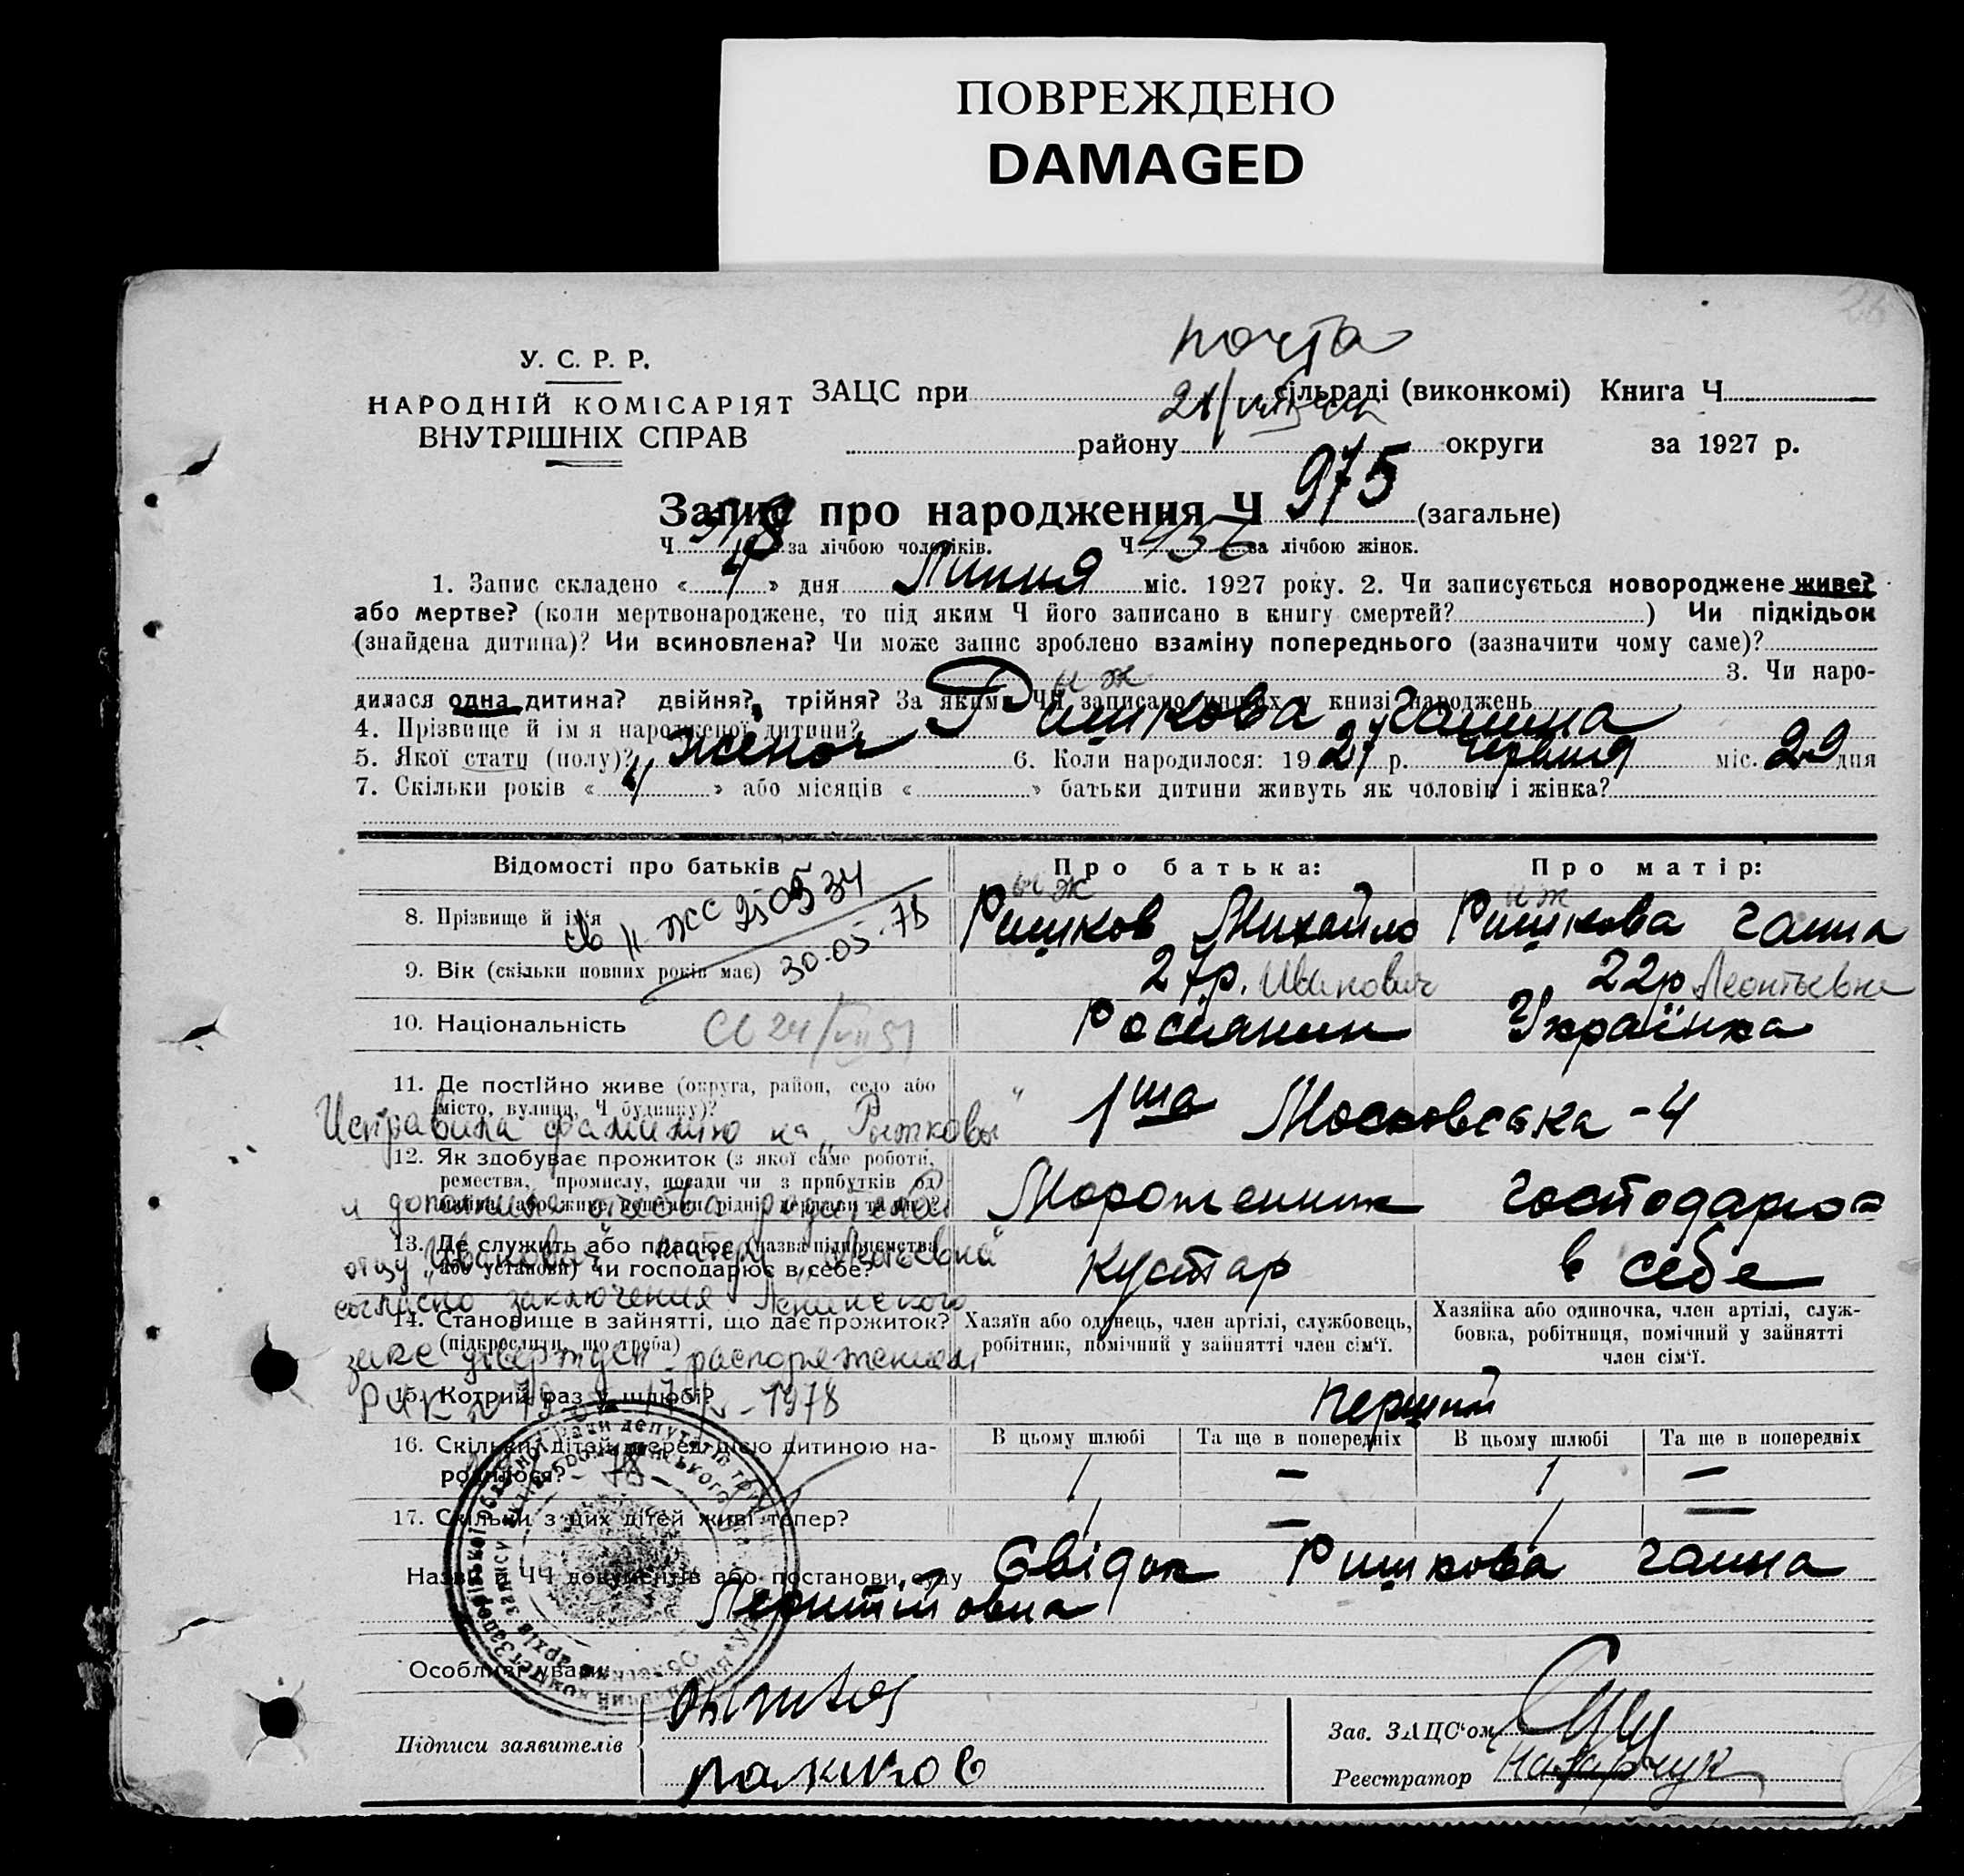 ПОВРЕЖДЕНО
DAMAGED
26
почта
У. С. Р. Р.
НАРОДНІЙ КОМІСАРІЯТ
ВНУТРІШНІХ СПРАВ
ЗАЦС при сільраді (виконкомі) Книга Ч
району округи за 1927 р.
Запис про народження Ч 975 (загальне)
Ч за лічбою чоловіків. Ч 456 за лічбою жінок.
1. Запис складено « 4 » дня Липня міс. 1927 року. 2. Чи записується новороджене живе?
або мертве? (коли мертвонароджене, то під яким Ч його записано в книгу смертей? ) Чи підкідьок
(знайдена дитина)? Чи всиновлена? Чи може запис зроблено взаміну попереднього (зазначити чому саме)?
3. Чи наро-
дилася одна дитина? двійня? трійня? За яким ЧЧ записано инших у книзі народжень
и ж
4. Прізвище й ім я народженої дитини? Ришкова Ганна
5. Якої стати (полу)? жіноч 6. Коли народилося: 1927 р. червня міс. 29 дня
7. Скільки років « 4 » або місяців « » батьки дитини живуть як чоловік і жінка?
Відомості про батьків Про батька: Про матір:
и ж и ж
8. Прізвище й ім'я Ришков Михайло Ришкова Ганна
св II ЖС 250534
30-05-78
9. Вік (скільки повних років має) 27р. Иванович 22р Леонтьевна
10. Національність Росіянин Українка
11. Де постійно живе (округа, район, село або
місто, вулиця, Ч будинку)? 1ша Московська - 4
Исправила фамилию на „Рыжковы"
12. Як здобуває прожиток (з якої саме роботи,
ремества, промислу, поради чи з прибутків од
Мороженник Господарює
и дополнила отчества родителей
13. Де служить або працює (назва підприємства
або установи) чи господарює в себе? Кустар в себе
отцу „Иванович" матери
согласно заключения Ленинского
14. Становище в зайнятті, що дає прожиток?
(підкреслити, що треба)
Хазяїн або одинець, член артілі, службовець,
робітник, помічний у зайнятті член сім'ї.
Хазяйка або одиночка, член артілі, служ-
бовка, робітниця, помічний у зайнятті
член сім'ї.
загс утвержден распоряжением
15. Котрий раз у шлюбі? перший
РИК 1978
16. Скільки дітей перед цією дитиною на-
родилося?
В цьому шлюбі Та ще в попередніх В цьому шлюбі Та ще в попередніх
1 — 1 —
17. Скільки з цих дітей живі тепер? 1 — 1 —
Назва й ЧЧ документів або постанови суду Свідок Ришкова Ганна
Леонтійовна
Особливі уваги
Підписи заявителів
Зав. ЗАЦС'ом
Реєстратор